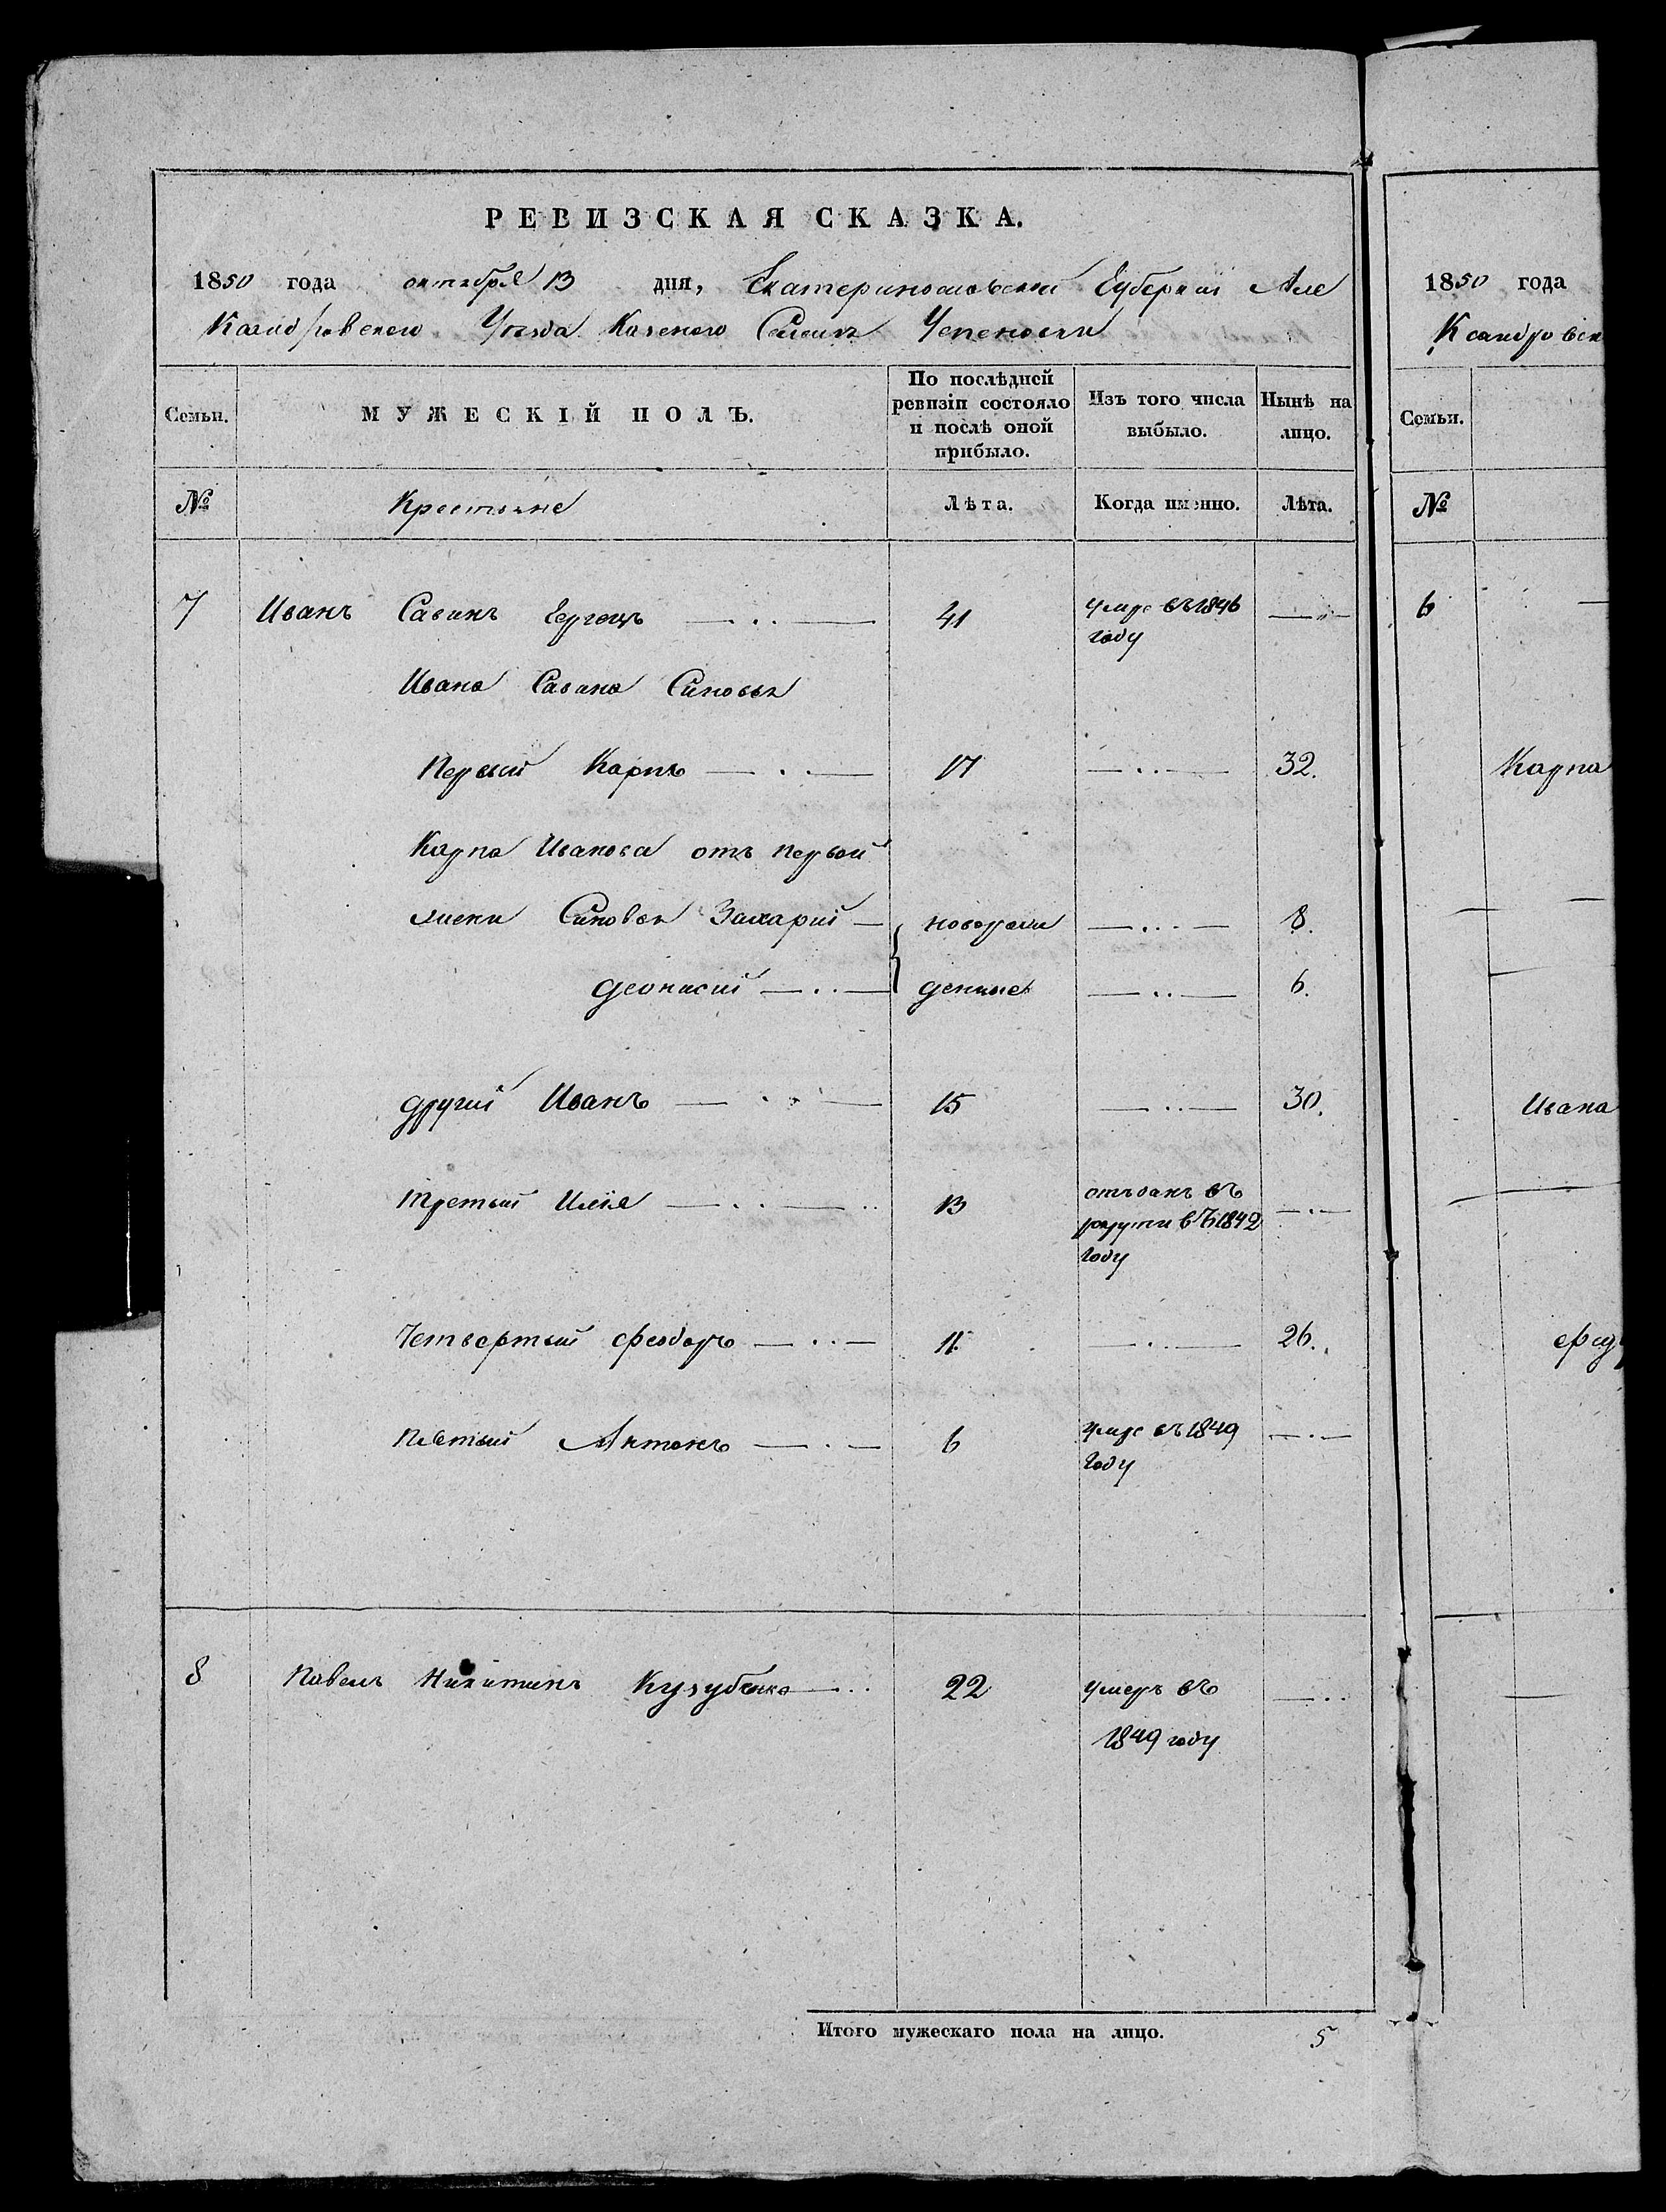 РЕВИЗСКАЯ СКАЗКА.
1850 года октября 13 дня, Екатеринославской Губернии Але
Ксандровского Уезда Казеного Селения
Семьи.
МУЖЕСКІЙ ПОЛЪ.
По послѣдней ревизіи состояло и послѣ оной прибыло.
Изъ того числа выбыло.
Нынѣ на лицо.
№
Крестьяне
Лѣта.
Когда именно.
Лѣта.
7 Иванъ Савинъ 41 умре въ 1846
году
Ивана Савина Синовья
Первый Карпъ 17 32.
Карпа Иванова отъ первой
жены Синовья Захарий новорож 8.
Деонисий денные 6.
другий Иванъ 15 30.
третый Илія 13 отъданъ въ
рекруты въ 1842
году
Четвертый Феодоръ 11. 26.
Пятый Антонъ 6 умре въ 1849
году
8 Павелъ Никитинъ 22 умеръ въ
1849 году
Итого мужескаго пола на лицо. 5
1850 года
Ксандровск
Семьи.
№
6
Карпа
Ивана